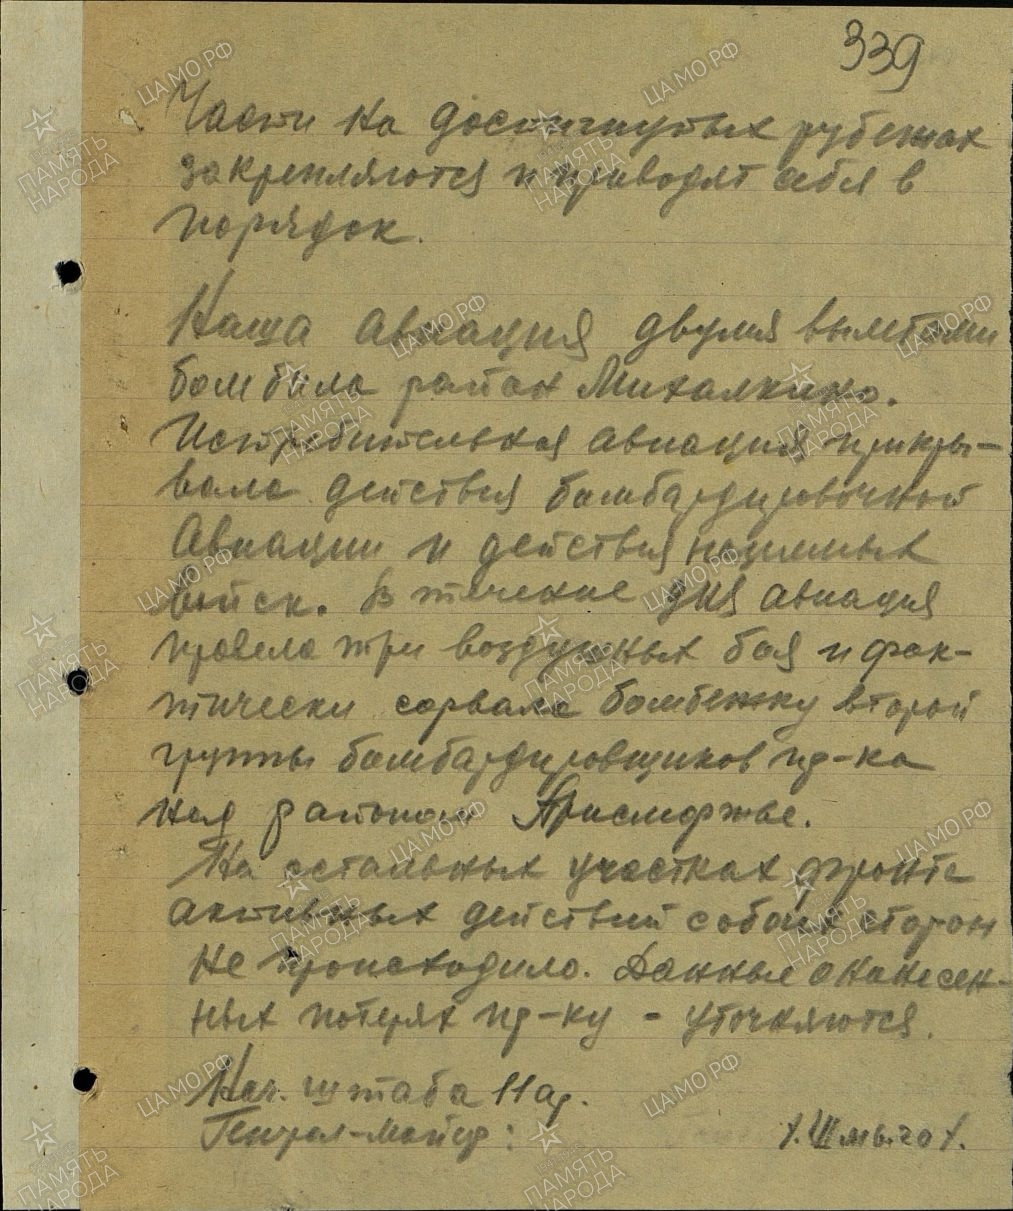 339
Части на достигнутых рубежах
закрепляются и приводят себя в
порядок.
Наша авиация двумя вылетами
бомбила район Михалкино.
Истребительная авиация прикры-
вала действия бомбардировочной
Авиации и действия наземных
войск. В течение дня авиация
провела три воздушных боя и фак-
тически сорвала бомбежку второй
группы бомбардировщиков пр-ка
над районом
На остальных участках фронта
активных действий с обоих сторон
не происходило. Данные о нанесен-
ных потерях пр-ку - уточняются.
Нач. штаба 11 ар.
Генерал-майор: /. Шмыго /.
ЦАМО РФ
ПАМЯТЬ
НАРОДА